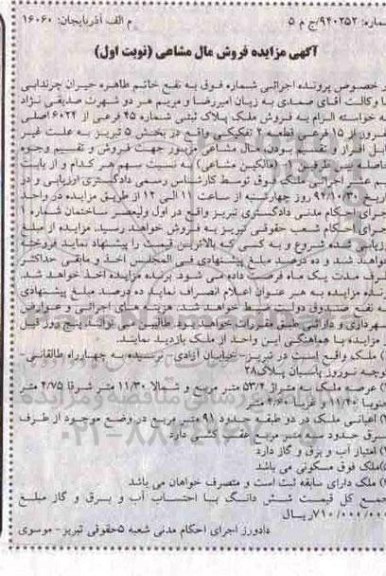 شماره: ۹۴۰۲۵۲/ج م ۵ م الف آذربایجان: ۱۶۰۶۰
آگهی مزایده فروش مال مشاعی (نوبت اول)
در خصوص پرونده اجرائی شماره فوق به نفع خانم طاهره حیران چرندابی
وکالت آقای صمدی به زیان امیررضا و مریم هر دو شهرت صدیقی نژاد
به خواسته الزام به فروش ملک پلاک ثبتی شماره ۴۵ فرعی از ۶۰۲۲ اصلی
مفروز از ۱۵ فرعی قطعه ۲ تفکیکی واقع در بخش ۵ تبریز به علت غیر
قابل افراز و تقسیم بودن مال مشاعی مزبور جهت فروش و تقسیم وجوه
حاصله بین طرفین (مالکین مشاعی) به نسبت سهم هر کدام و از بابت
نیم عشر اجرائی ملک فوق توسط کارشناس رسمی دادگستری ارزیابی و در
تاریخ ۹۴/۱۰/۳۰ روز چهارشنبه از ساعت ۱۱ الی ۱۲ از طریق مزایده در واحد
اجرای احکام مدنی دادگستری تبریز واقع در اول ولیعصر ساختمان شماره ۱
اجرای احکام شعب حقوقی تبریز به فروش خواهد رسید. مزایده از مبلغ
ارزیابی شده شروع و به کسی که بالاترین قیمت را پیشنهاد نماید فروخته
خواهد شد و ده درصد مبلغ پیشنهادی فی المجلس اخذ و مابقی حداکثر
مدت یک ماه فرصت داده می شود. برنده مزایده اخذ خواهد شد
برنده مزایده به هر عنوان اعلام انصراف نماید ده درصد مبلغ پیشنهادی
به نفع صندوق دولت ضبط خواهد شد. هزینه های اجرائی و عوارض
شهرداری و دارائی طبق مقررات خواهد بود. طالبین می توانند پنج روز قبل
از مزایده با هماهنگی این واحد از ملک بازدید نمایند.
ملک واقع است در تبریز-خیابان آزادی- نرسیده به چهارراه طالقانی-
کوچه نوروز پاسبان پلاک ۲۸
عرصه ملک به متراژ ۵۳/۲ متر مربع و شمالا ۱۱/۳۰ متر شرقا ۴/۷۵ متر
جنوبا ۱۱/۲۰ و غربا متر
اعیانی ملک در دو طبقه حدود ۹۱ متر مربع در وضع موجود از طرف
شرق حدود متر مربع عقب کشی دارد
امتیاز آب و برق و گاز دارد
ملک فوق مسکونی می باشد
ملک دارای سابقه ثبت است و متصرف خواهان می باشد
جمع کل قیمت شش دانگ با احتساب آب و برق و گاز مبلغ
۷۱۰/۰۰۰/۰۰۰ ریال
دادورز اجرای احکام مدنی شعبه ۵ حقوقی تبریز- موسوی